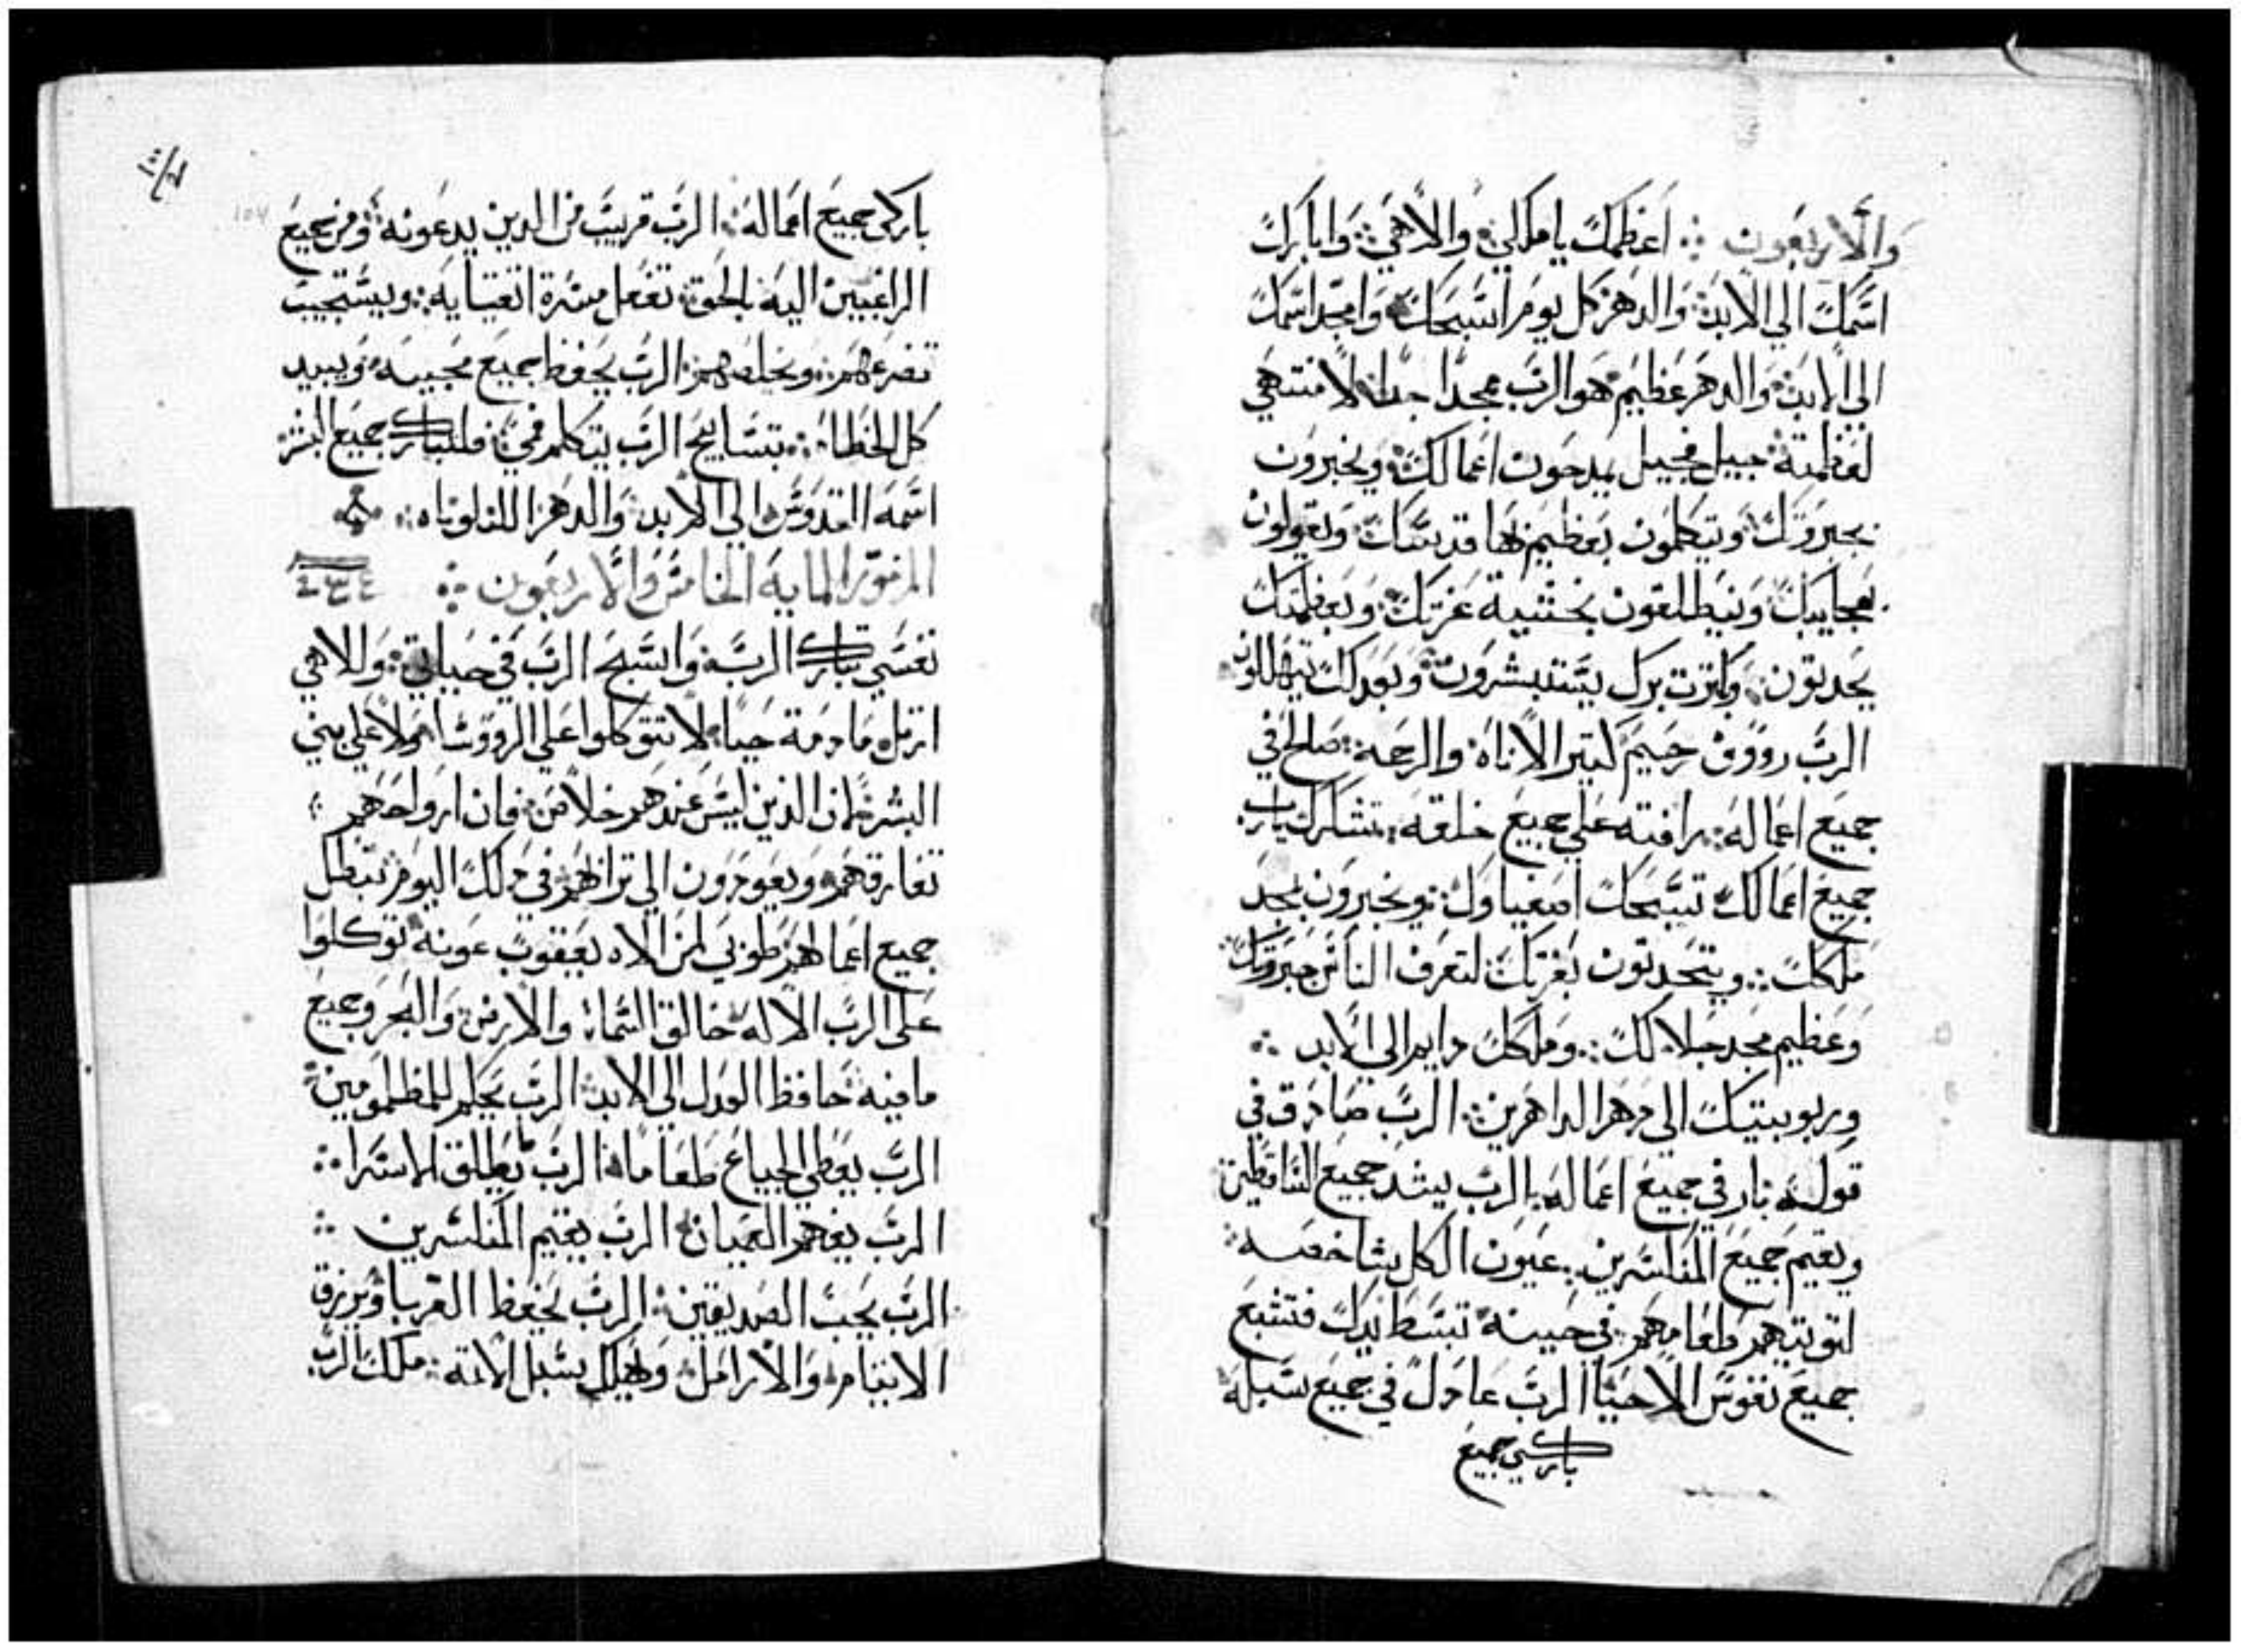 والاربعون ⁘ اعظمك ياملكي والاهي وابارك
اسمك الي الابد والدهر كل يوم اسبحك وامجد اسمك
الي الابد والدهر عظيم هو الرب ممجدا جدا لا منتهي
لعظمته جيل فجيل يمدحون اعمالك ويخبرون
بجبروتك ويتكلمون بعظيم بها قدسك ويقولون
بعجايبك وينطلقون بخشية عزتك وبعظمتك
يحدثون وكثرت برك يستبشرون وبعدلك يتهللون
الرب رووف رحيم كتير الاناة والرحمة صالح في
جميع اعماله رافته علي جميع خلقه تشكرك يارب
جميع اعمالك تسبحك اصفياوك ويخبرون بمجد
ملكك ويتحدتون بعزتك لتعرف الناس جبروتك
وعظيم مجد جلالك وملكك دايم الي الابد
وربوبيتك الي دهر الداهرين الرب صادق في
قوله بار في جميع اعماله الرب يشد جميع الساقطين
ويقيم جميع المنكسرين عيون الكل شاخصه
لتوتيهم طعامهم في حينه تبسط يدك فتشبع
جميع نفوس الاحيا الرب عادل في جميع سبله
باركي جميع
باركي جميع اعماله الرب قريب من الدين يدعونه ومن جميع
الراغبين اليه بالحق تفعل مسرة اتقيايه ويستجيب
تضرعهم ويخلصهم الرب يحفظ جميع محبيه ويبيد
كل الخطاه بتسابيح الرب يتكلم فمي فليبارك جميع البشر
اسمه القدوس الي الابد والدهر الليلوياه
المزمور الماية الخامس والاربعون ⁘
نفسي تبارك الرب واسبح الرب في حياتي وللاهي
ارتل مادمة حيا لا تتوكلوا علي الروسا ولا علي بني
البشر فان الذين ليس عندهم خلاص فان ارواحهم
تفارقهم ويعودون الي ترابهم في دلك اليوم تبطل
جميع اعمالهم طوبي لمن الاه يعقوب عونه توكلوا
علي الرب الاله خالق السما والارض والبحر وجميع
مافيه حافظ العدل الي الابد الرب يحكم للمظلومين
الرب يعطي الجياع طعاما الرب يطلق الاسرا
الرب يفهم العميان الرب يقيم المنكسرين
الرب يحب الصديقين الرب يحفظ الغربا ويرزق
الايتام والارامل ويهلك سبل الاتمه ملك الرب